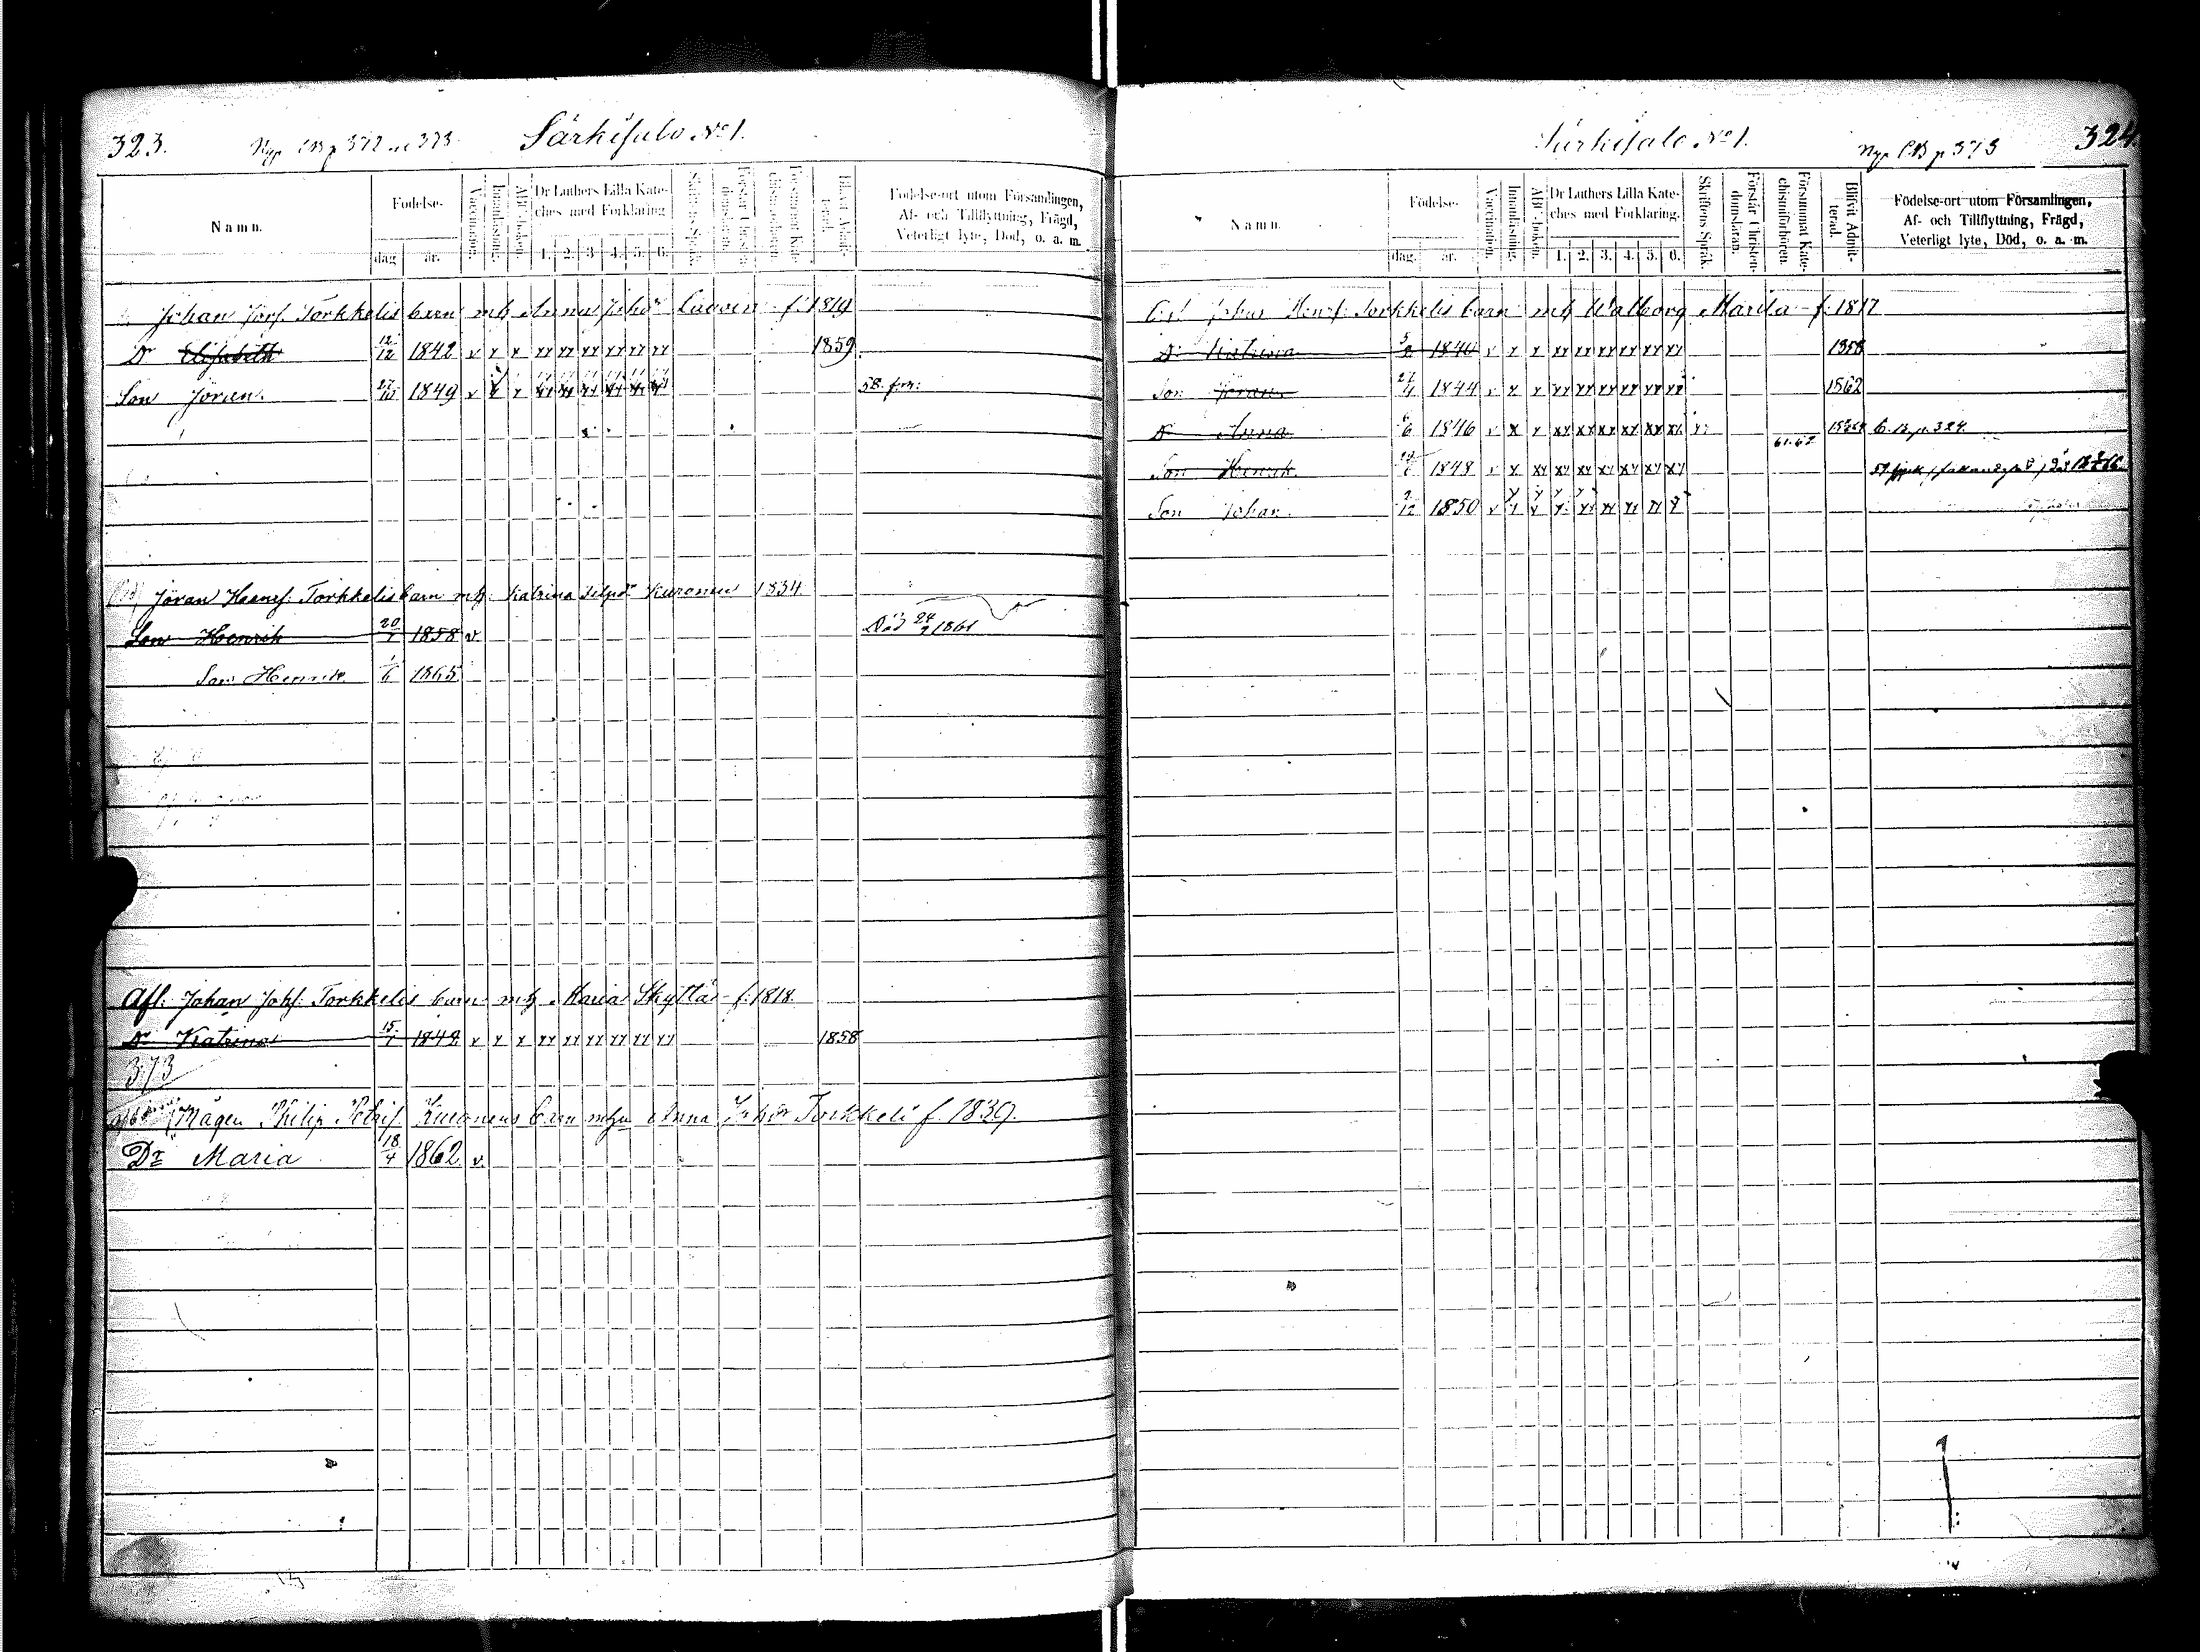 323.
Nya CB p 372 o 373
Särkisalo No 1.
Namn.
Födelse-
dag
år.
Vaccination.
Innanläsning.
ABC-boken.
Dr Luthers Lilla Kate-
ches med Förklaring
1. 2. 3. 4. 5. 6.
Födelse-ort utom Församlingen,
Af- och Tillflyttning, Frägd,
Veterligt lyte, Död, o. a. m.
Johan Jörs. Torkkelis barn mh Anna Johsdr Laavin f. 1814
Dr Elisabeth 12/12 1842 v x x xx xx xx xx xx xx 1859.
Son Jöran. 27/10 1849 v x x xx xx xx xx xx xx 58. frv:
Jöran Henrs. Torkkelis barn mh. Katrina Filpsdr Kuronen 1834
Son Henrik 20/7 1858 v Död 24/9 1861
Son Henrik 1/6 1865
Afl. Johan Johs. Torkkelis barn mh Maria Skyttä f. 1818.
Dr Katrina 15/1 1842 x x x xx xx xx xx xx xx 1858
373
Mågen Philip Petris. Kuronens barn mhu Anna Johsdr Torkkeli f. 1839.
Dr Maria 18/4 1862 v.
Särkisalo No 1.
Nya CB p 373
324
Namn.
Födelse-
dag.
år.
Vaccination.
Innanläsning.
ABC-boken.
Dr Luthers Lilla Kate-
ches med Förklaring.
1. 2. 3. 4. 5. 6.
Skriftens Språk.
Förstår Christen-
domsläran.
Försummat Kate-
chismiförhören.
Blifvit Admit-
terad.
Födelse-ort utom Församlingen,
Af- och Tillflyttning, Frägd,
Veterligt lyte, Död, o. a. m.
Johan Henrs. Torkkelis barn mh Walborg Marita f. 1817
Dr Katrina 1840 v x x xx xx xx xx xx xx 1858
Son Jöran 27/4 1844 v x x xx xx xx xx xx xx 1862
Dr Anna 1846 v x x xx xx xx xx xx xx 61.62 C.B. p. 324
Son Henrik 1848 v x xx xx xx xx xx xx xx
Son Johan. 2/12 1850 v x x x xx xx xx xx x